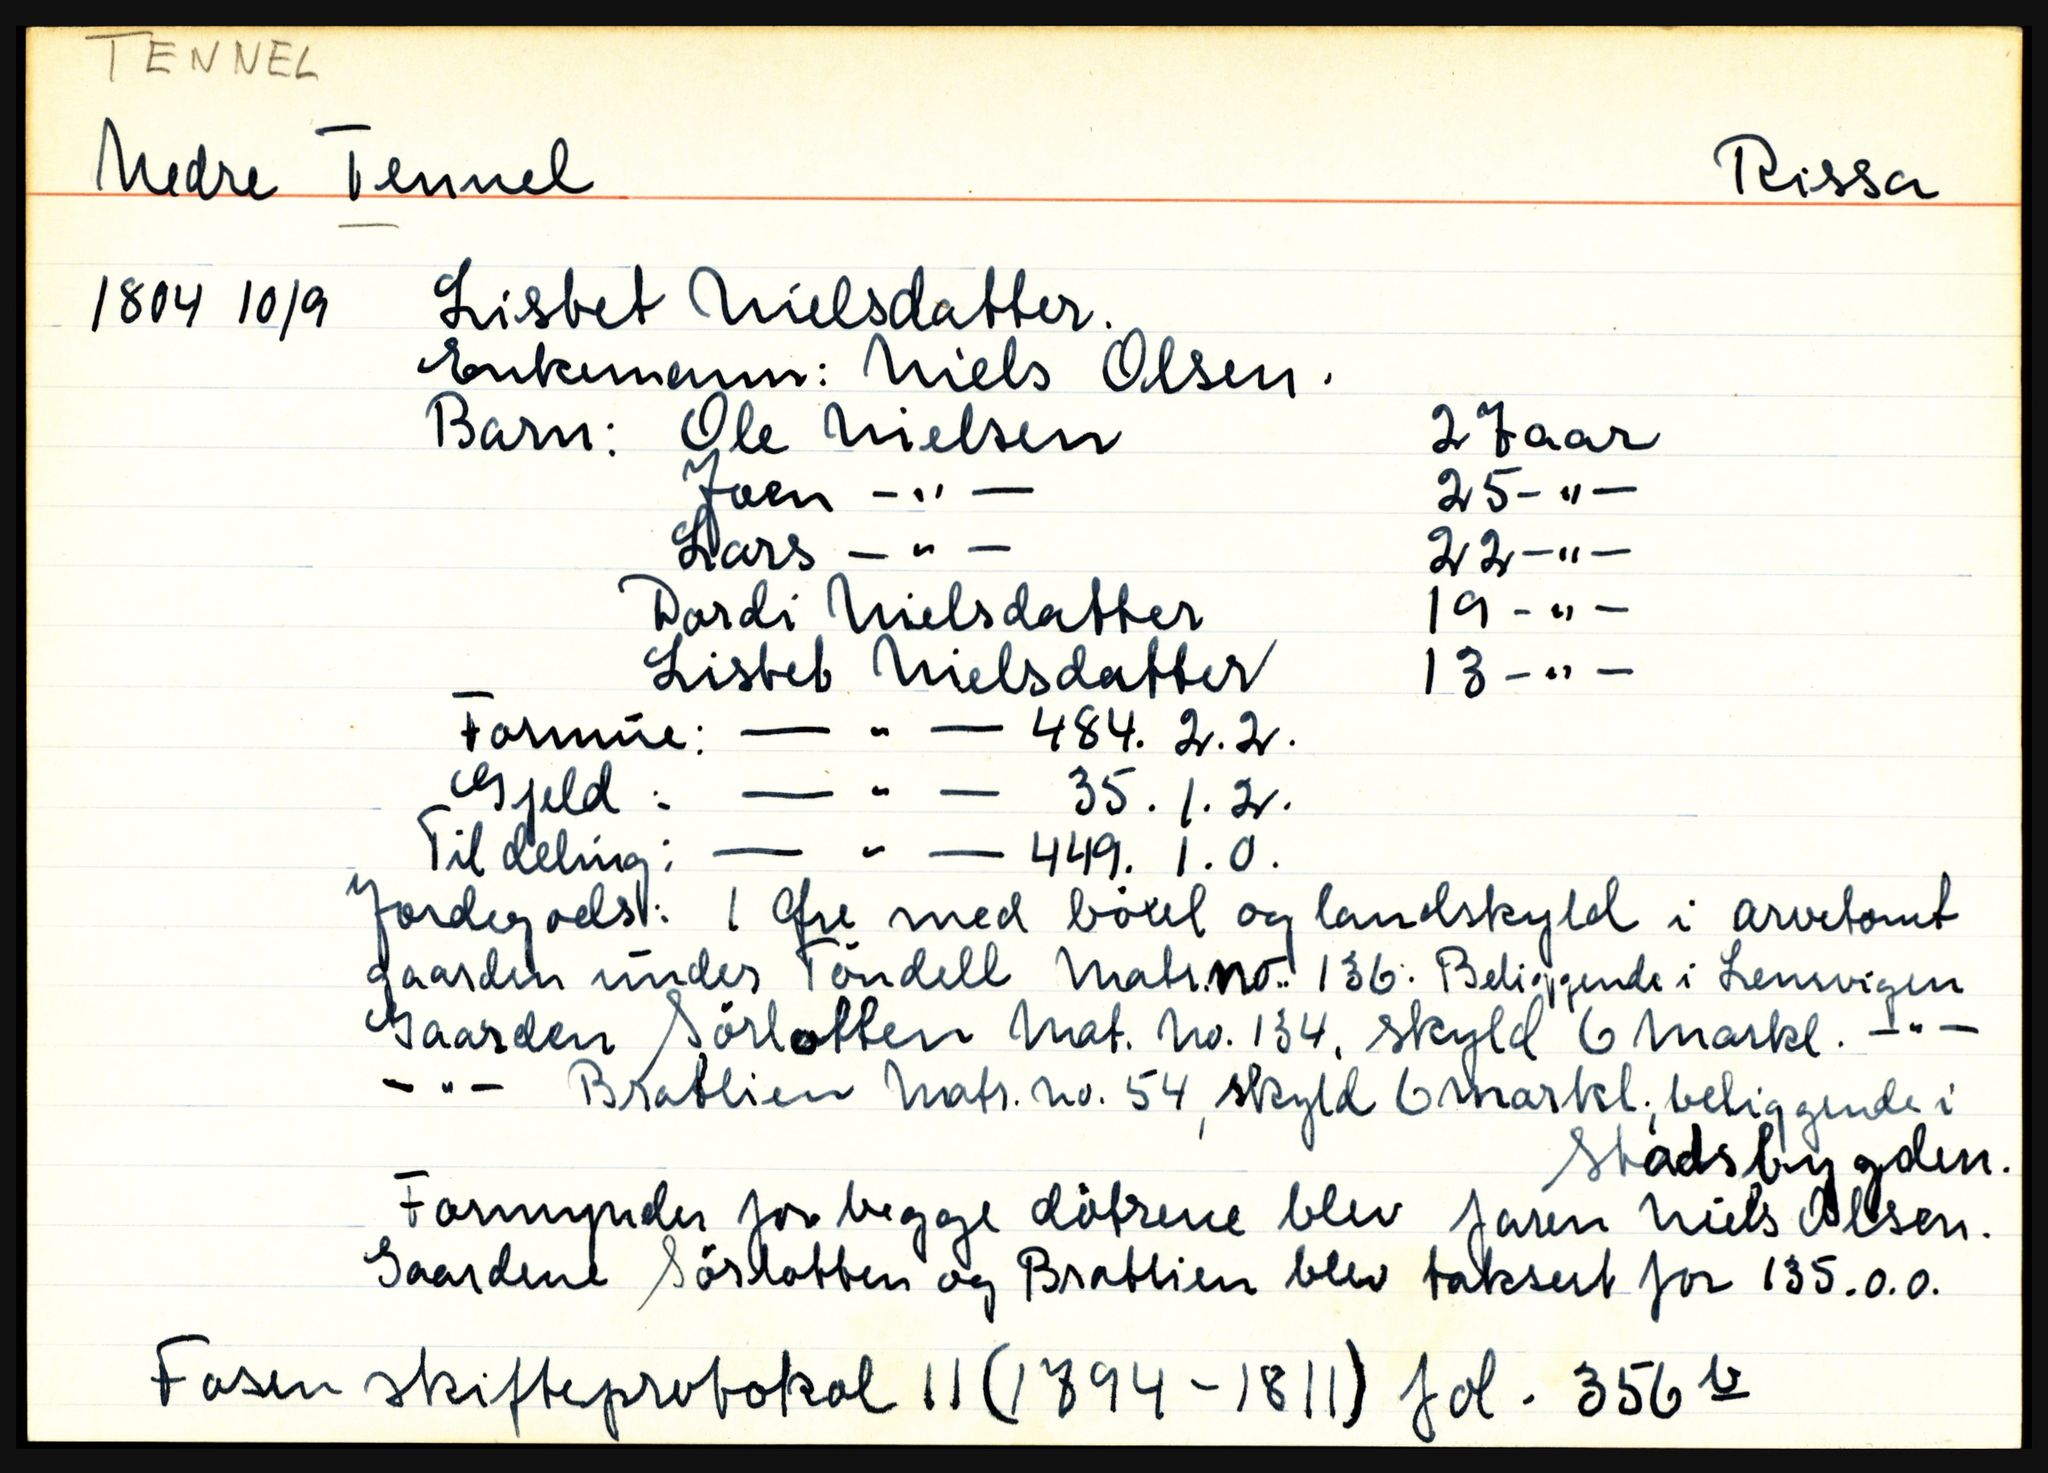 TENNEL
Nedre Tennel Rissa
1804 10/9 Lisbet Nielsdatter.
Enkemann: Niels Olsen.
Barn: Ole Nielsen 27 aar
Joen -"- 25 -"-
Lars -"- 22 -"-
Dordi Nielsdatter 19 -"-
Lisbet Nielsdatter 13 -"-
Formue: -"- 484. 2. 2.
Gjeld: -"- 35. 1. 2.
Til deling: -"- 449. 1. 0.
Jordegods: 1 Øre med böxel og landskyld i arvetomt
gaarden under Töndell Matr. no. 136. Beliggende i Lensvigen
Gaarden Sörlotten Mat. No. 134, skyld 6 Markl. -"-
-"- Bratlien Matr. no. 54, skyld 6 markl., beliggende i
Stadsbygden.
Formynder for begge dötrene blev faren Niels Olsen.
Gaardene Sörlotten og Bratlien blev taksert for 135.0.0.
Fosen skifteprotokol 11 (1794-1811) fol. 356 b